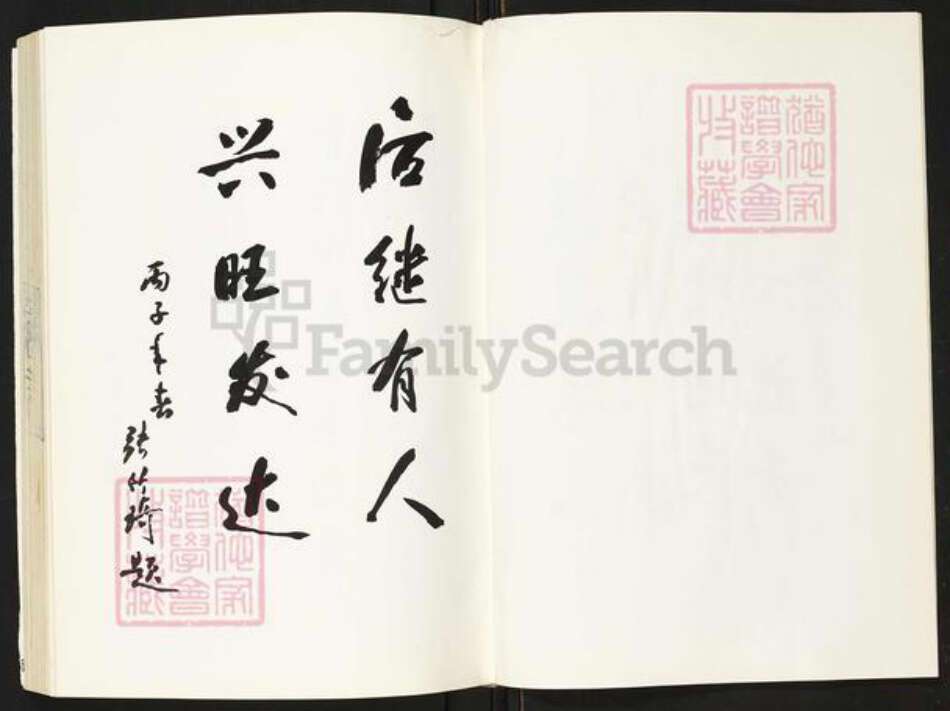 后继有人
兴旺发达
丙子年春
张竹琦题
猶他家
譜學會
收藏
猶他家
譜學會
收藏
FamilySearch